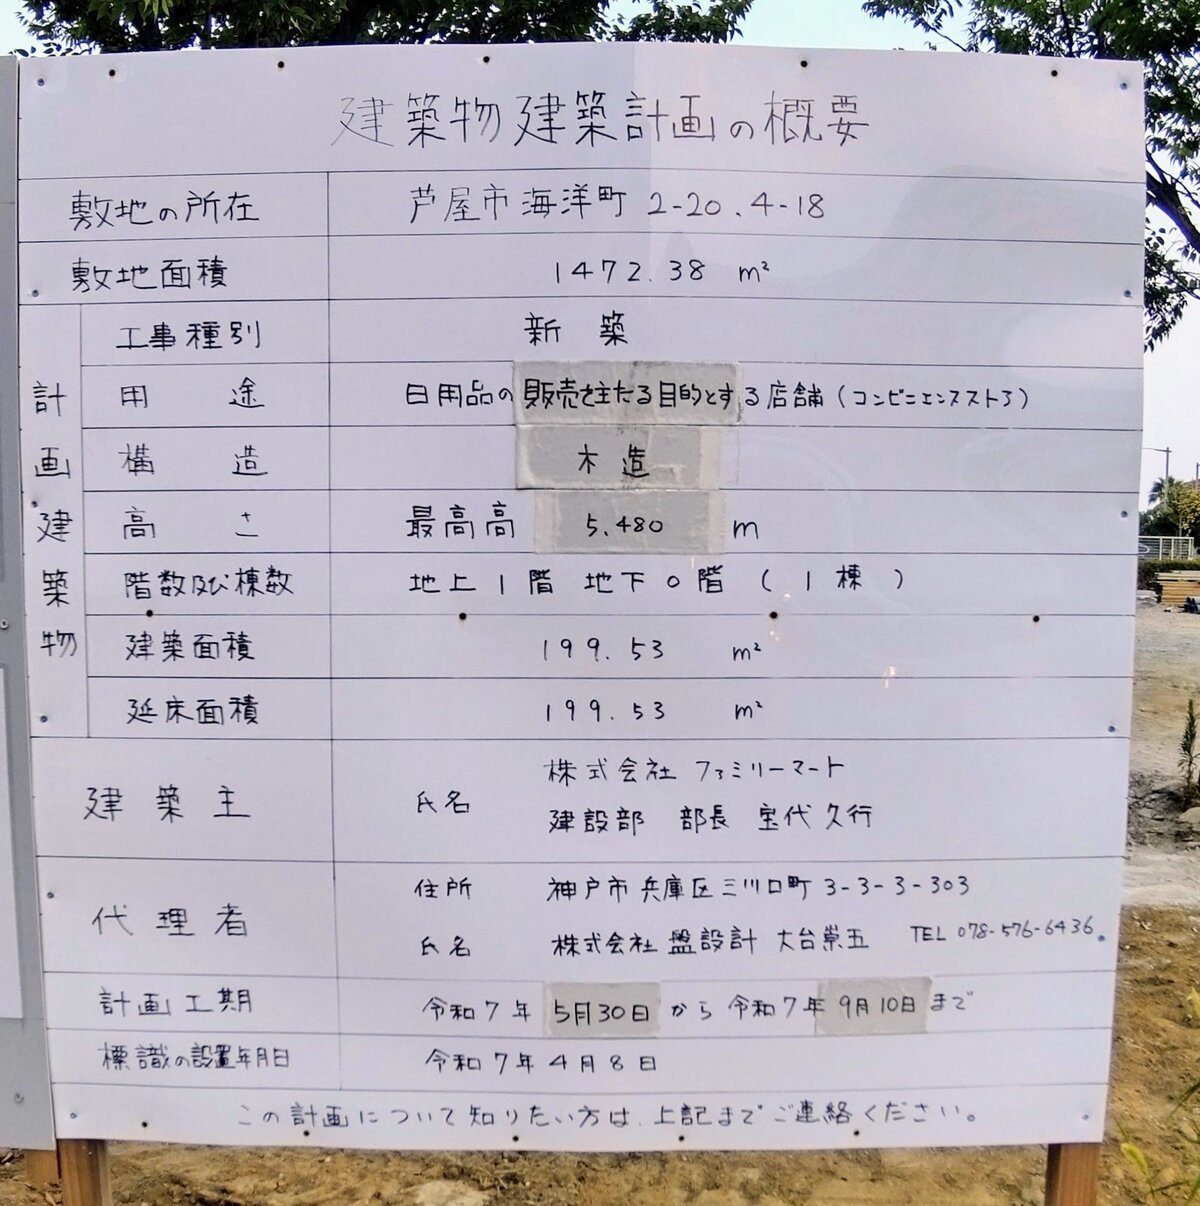 建築物建築計画の概要
敷地の所在 芦屋市海洋町 2-20.4-18
敷地面積 1472.38 m²
計画建築物
工事種別 新築
用途 日用品の販売を主たる目的とする店舗(コンビニエンスストア)
構造 木造
高さ 最高高 5.480 m
階数及び棟数 地上1階 地下0階 (1棟)
建築面積 199.53 m²
延床面積 199.53 m²
建築主 氏名 株式会社 ファミリーマート
建設部 部長 宝代久行
代理者 住所 神戸市兵庫区三川口町3-3-3-303
氏名 株式会社 盤設計 大台崇五 TEL 078-576-6436
計画工期 令和7年5月30日から令和7年9月10日まで
標識の設置年月日 令和7年4月8日
この計画について知りたい方は、上記までご連絡ください。